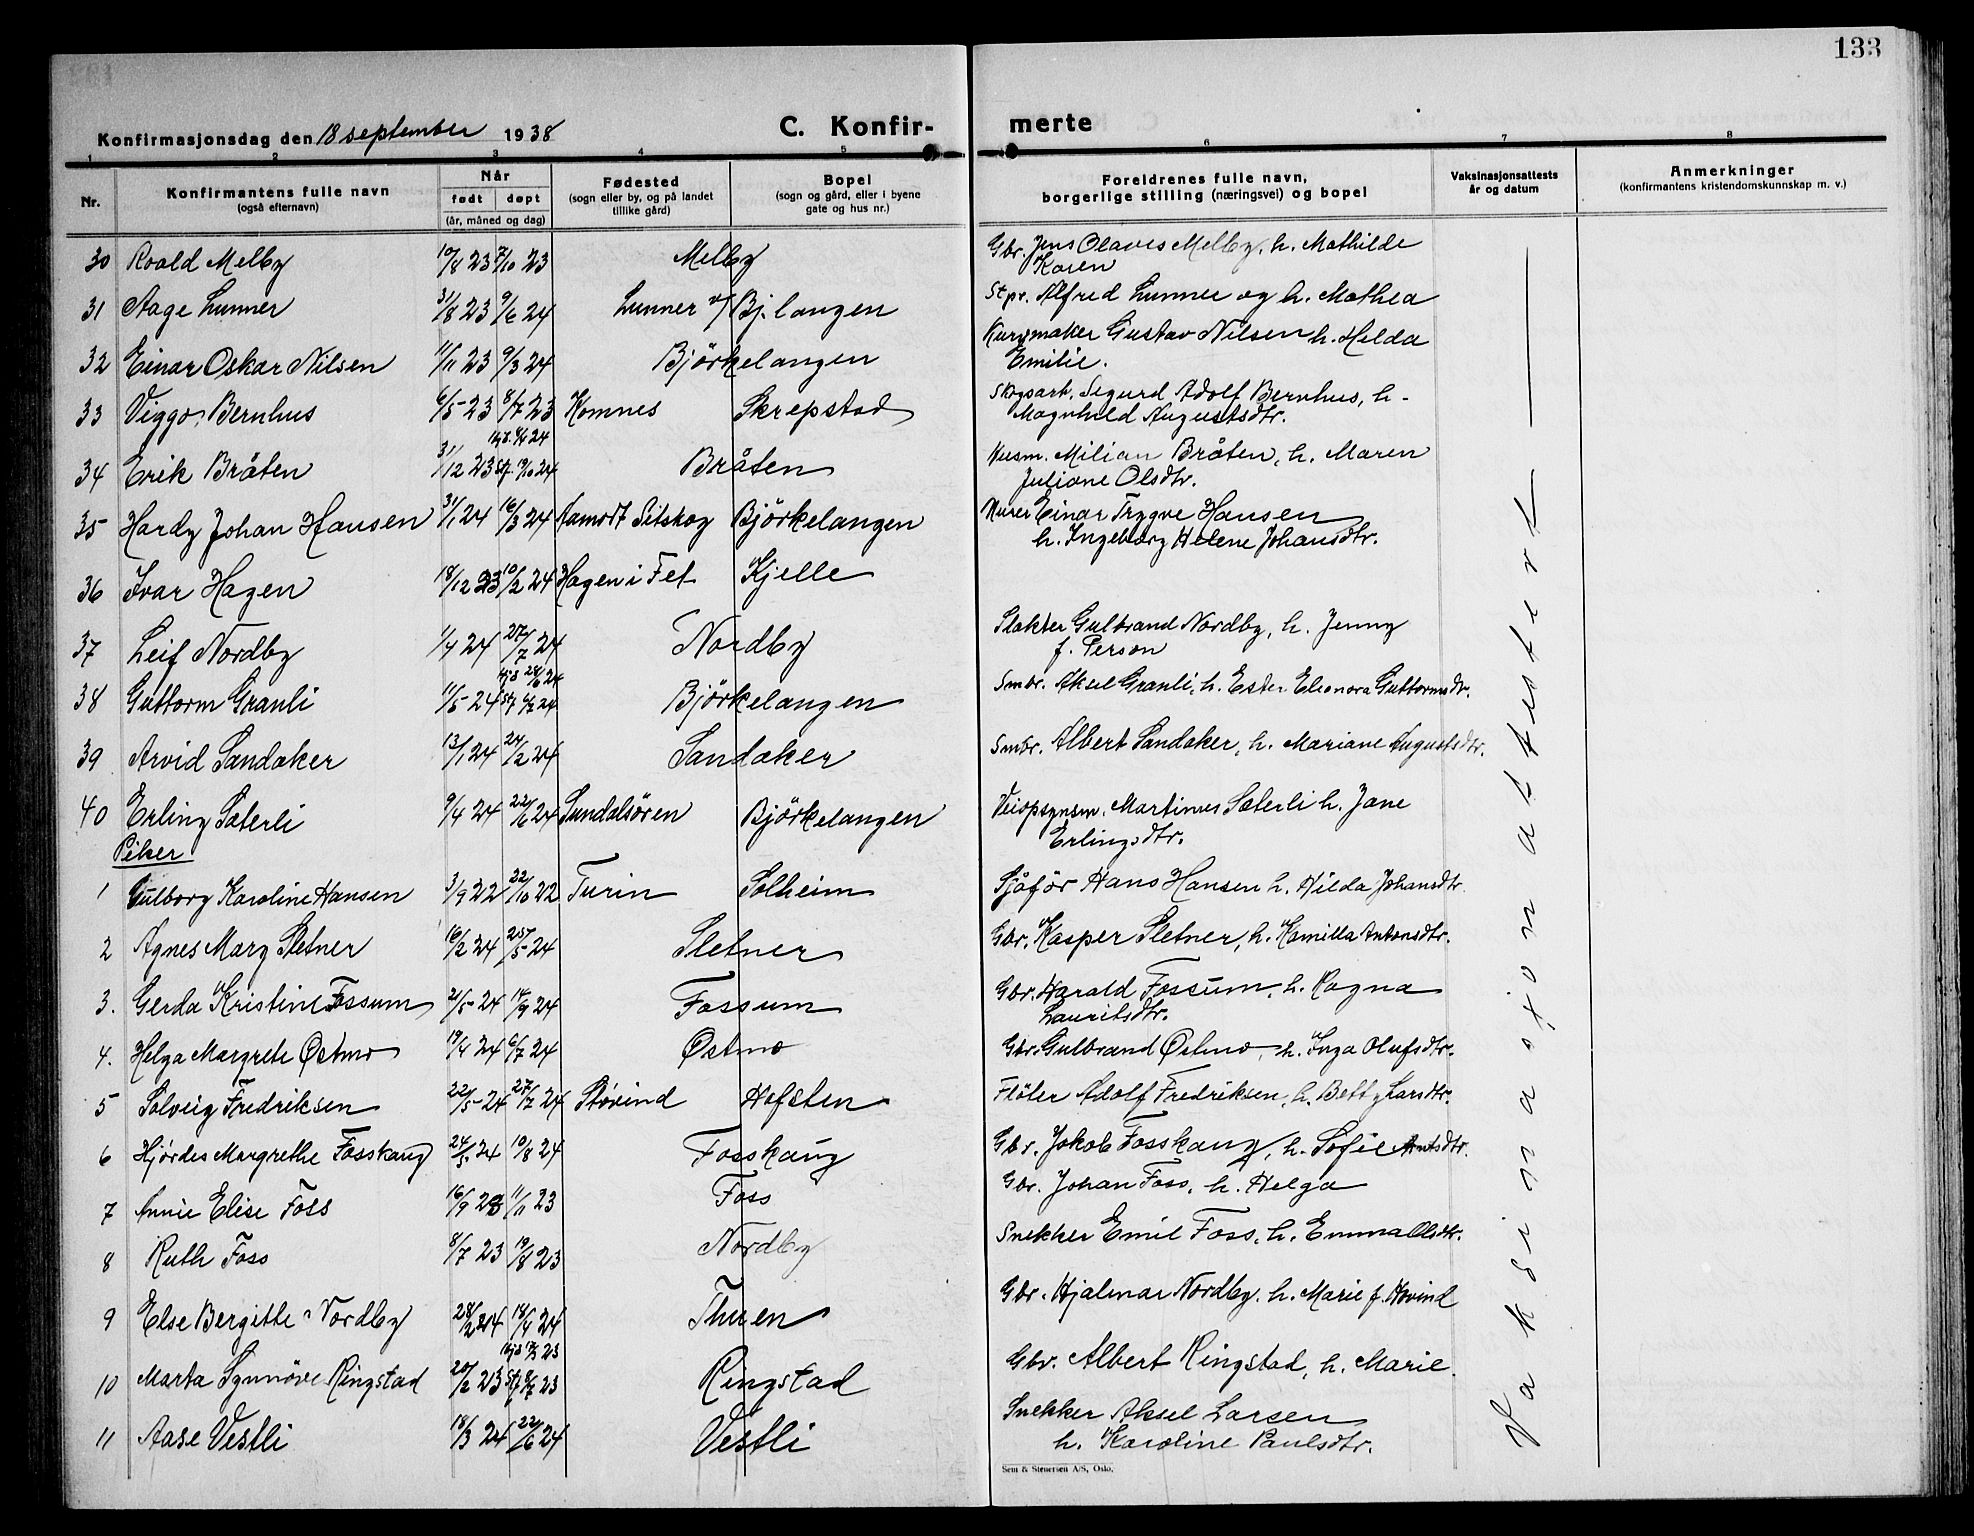 133
Konfirmasjonsdag den 18 september 1938
C. Konfir-
merte
1 2 3 4 5 6 7 8
Nr.
Konfirmantens fulle navn
(også efternavn)
Når
født døpt
(år, måned og dag)
Fødested
(sogn eller by, og på landet
tillike gård)
Bopel
(sogn og gård, eller i byene
gate og hus nr.)
Foreldrenes fulle navn,
borgerlige stilling (næringsvei) og bopel
Vaksinasjonsattests
år og datum
Anmerkninger
(konfirmantens kristendomskunnskap m. v.)
30 Roald Melby 10/8 23 7/10 23 Melby Gbr. Jens Olaves Melby, h. Mathilde
Karen
31 Aage Lunner 31/8 23 9/6 24 Lunner v/ Bj.langen St pr. Alfred Lunner og h. Mathea
32 Einar Oskar Nilsen 11/11 23 9/3 24 Björkelangen Kurvmaker Gustav Nilsen h. Helda
Emilie.
33 Viggo Bernhus 6/5 23 8/7 23 Komnes Skrepstad Skogsarb. Sigurd Adolf Bernhus, h.
Magnhild Augustsdtr.
34 Erik Bråten 31/12 23 hjd. 8/4 24
st. 19/10 24 Bråten Kusm. Milian Bråten, h. Maren
Juliane Olsdtr.
35 Hardy Johan Hansen 31/1 24 16/3 24 Aamodt Sitskog Björkelangen Murer Einar Trygve Hansen
h. Ingeborg Helene Johansdtr.
36 Ivar Hagen 18/12 23 10/2 24 Hagen i Fet Kjelle
37 Leif Nordby 1/4 24 27/7 24 Nordby Slakter Gulbrand Nordby, h. Jenny
f. Person
38 Guttorm Granli 11/5 24 Björkelangen Smbr. Aksel Granli, h. Ester Eleonora Guttormsdtr.
39 Arvid Sandaker 13/1 24 24/2 24 Sandaker Smbr. Albert Sandaker, h. Mariane Augustsdtr.
40 Erling Sæterli 9/4 24 22/6 24 Sundalsören Björkelangen Veiopsynsm. Martinus Sæterli h. Jane
Erlingsdtr.
Piker
1 Gulborg Karoline Hansen 3/9 22 22/10 22 Turin Solheim Sjåför Hans Hansen h. Hilda Johansdtr.
2 Agnes Mary Sletner 16/2 24 25/5 24 Sletner Gbr. Kasper Sletner, h. Kamilla Antonsdtr.
3. Gerda Kristine Fossum 21/5 24 14/9 24 Fossum Gbr. Harald Fossum, h. Ragna
Lauritsdtr.
4. Helga Margrete Østmo 19/4 24 6/7 24 Østmo Gbr. Gulbrand Østmo, h. Inga Olufsdtr.
5 Solveig Fredriksen 22/5 24 27/7 24 Støvind Hofsten Fløter Adolf Fredriksen, h. Betty Larsdtr.
6 Hjørdes Margrethe Fosskaug 24/5 24 10/8 24 Fosskaug Gbr. Jakob Fosskaug, h. Sofie Arntsdtr.
7 Annie Elise Foss 16/9 23 11/11 23 Foss Gbr. Johan Foss, h. Helga
8 Ruth Foss 8/7 23 19/8 23 Nordby Snekker Emil Foss, h. Emma Olsdtr.
9 Else Bergitte Nordby 28/2 24 18/4 24 Thuen Gbr. Hjalmar Nordby, h. Marie f. Hovind
10 Marta Synnöve Ringstad 20/2 23 Ringstad Gbr. Albert Ringstad, h. Marie.
11 Aase Vestli 18/3 24 22/6 24 Vestli Snekker Aksel Larsen
h. Karoline Paulsdtr.
Vaksinasjonsattestert
Sem & Stenersen A/S, Oslo.